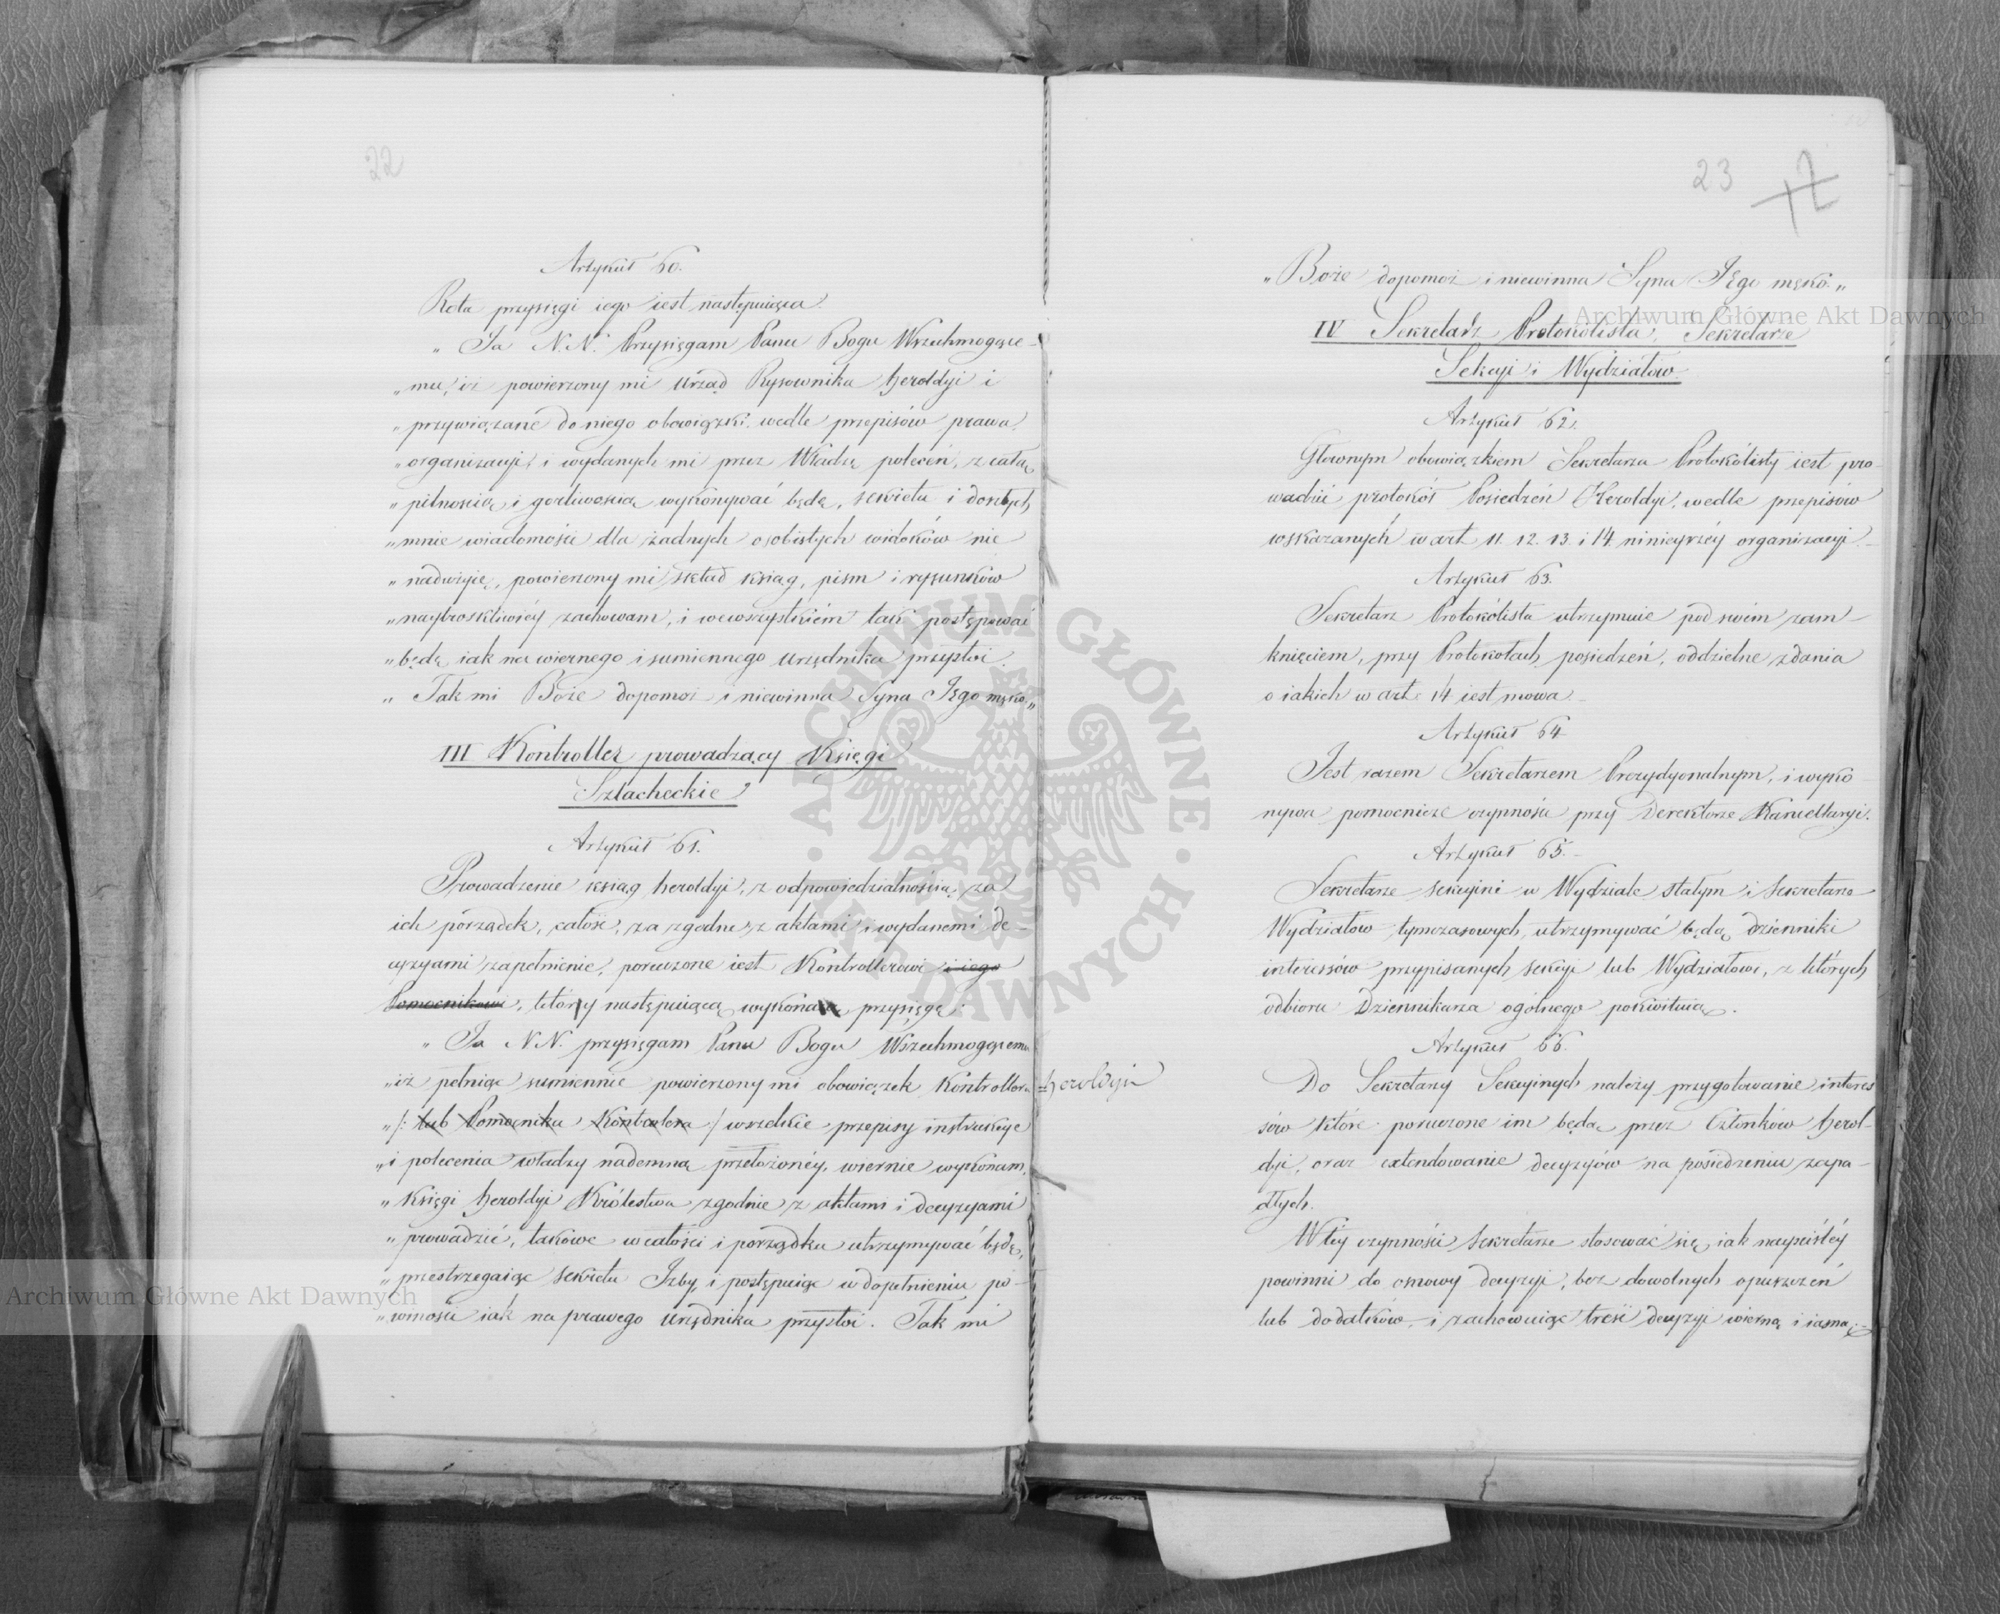 22
Artykuł 60.
Rota przysięgi iego iest następuiąca.
„Ja N.N. Przysięgam Panu Bogu Wszechmogące-
„mu, iż powierzony mi urząd Rysownika Heroldyi i
„przywiązane do niego obowiązki wedle przepisów prawa,
„organizacyi, i wydanych mi przez Władzę poleceń, z całą
„pilnością i gorliwością wykonywać będę, sekretu i doszłych
„mnie wiadomości dla żadnych osobistych widoków nie
„nadużyię, powierzony mi skład ksiąg, pism i rysunków
„naytroskliwiéy zachowam, i wewszystkiém tak postępować
„będę iak na wiernego i sumiennego urzędnika przystoi.
„Tak mi Boże dopomoż i niewinna Syna Jego męko„
III Kontroller prowadzący Księgi
Szlacheckie
Artykuł 61.
Prowadzenie ksiąg Heroldyi, z odpowiedzialnością za
ich pórządek, całość, za zgodne z aktami i wydanemi de-
cyzyami zapełnienie, poruczone iest Kontrollerowi i iego
Pomocnikowi, który następuiącą wykona przysięgę:
„Ja N.N. przysięgam Panu Bogu Wszechmogącemu
„iż pełniąc sumiennie powierzony mi obowiązek Kontrollera Heroldyi
„/: lub Pomocnika Kontrolera :/ wszelkie przepisy instrukcye
„i polecenia władzy nademną przełożonéy, wiernie wykonam,
„Księgi Heroldyi Królestwa zgodnie z aktami i decyzyami
„prowadzić, takowe w całości i porządku utrzymywać będę,
„przestrzegaiąc sekretu Izby, i postępuiąc w dopełnieniu po-
„winności iak na prawego urzędnika przystoi. Tak mi
23
12
„Boże dopomoż i niewinna Syna Jego męko.„
IV Sekretarz Protokolista, Sekretarze
Sekcyi i Wydziałów
Artykuł 62.
Głownym obowiązkiem Sekretarza Protokólisty iest pro-
wadzić protokół Posiedzeń Heroldyi, wedle przepisów
wskazanych w art 11. 12. 13. i 14 ninieyszéy organizacyi.
Artykuł 63.
Sekretarz Protokólista utrzymuie pod swém zam-
knięciem, przy Protokołach posiedzeń, oddzielne zdania
o iakich w art. 14 iest mowa
Artykuł 64
Jest razem Sekretarzem Prezydyonalnym, i wyko
nywa pomocnicze czynności przy Derektorze Kancellaryi.
Artykuł 65.
Sekretarze sekcyini w Wydziale stałym i sekretarze
Wydziałow tymczasowych, utrzymywać będą dzienniki
interessów przypisanych sekcyi lub Wydziałowi, z których
odbioru Dziennikarza ogólnego pokwituią.
Artykuł 66.
Do Sekretarzy Sekcyinych należy przygotowanie interes
sów które poruczone im będą przez Członków Herol-
dyi, oraz extendowanie decyzyów na posiedzeniu zapa-
dłych.
W téy czynności sekretarze stosować się iak nayściśléy
powinni do osnowy decyzyi, bez dowolnych opuszczeń
lub dodatków, i zachowuiąc treść decyzyi wierną i iasną;
Archiwum Główne Akt Dawnych
Archiwum Główne Akt Dawnych
ARCHIWUM GŁÓWNE AKT DAWNYCH